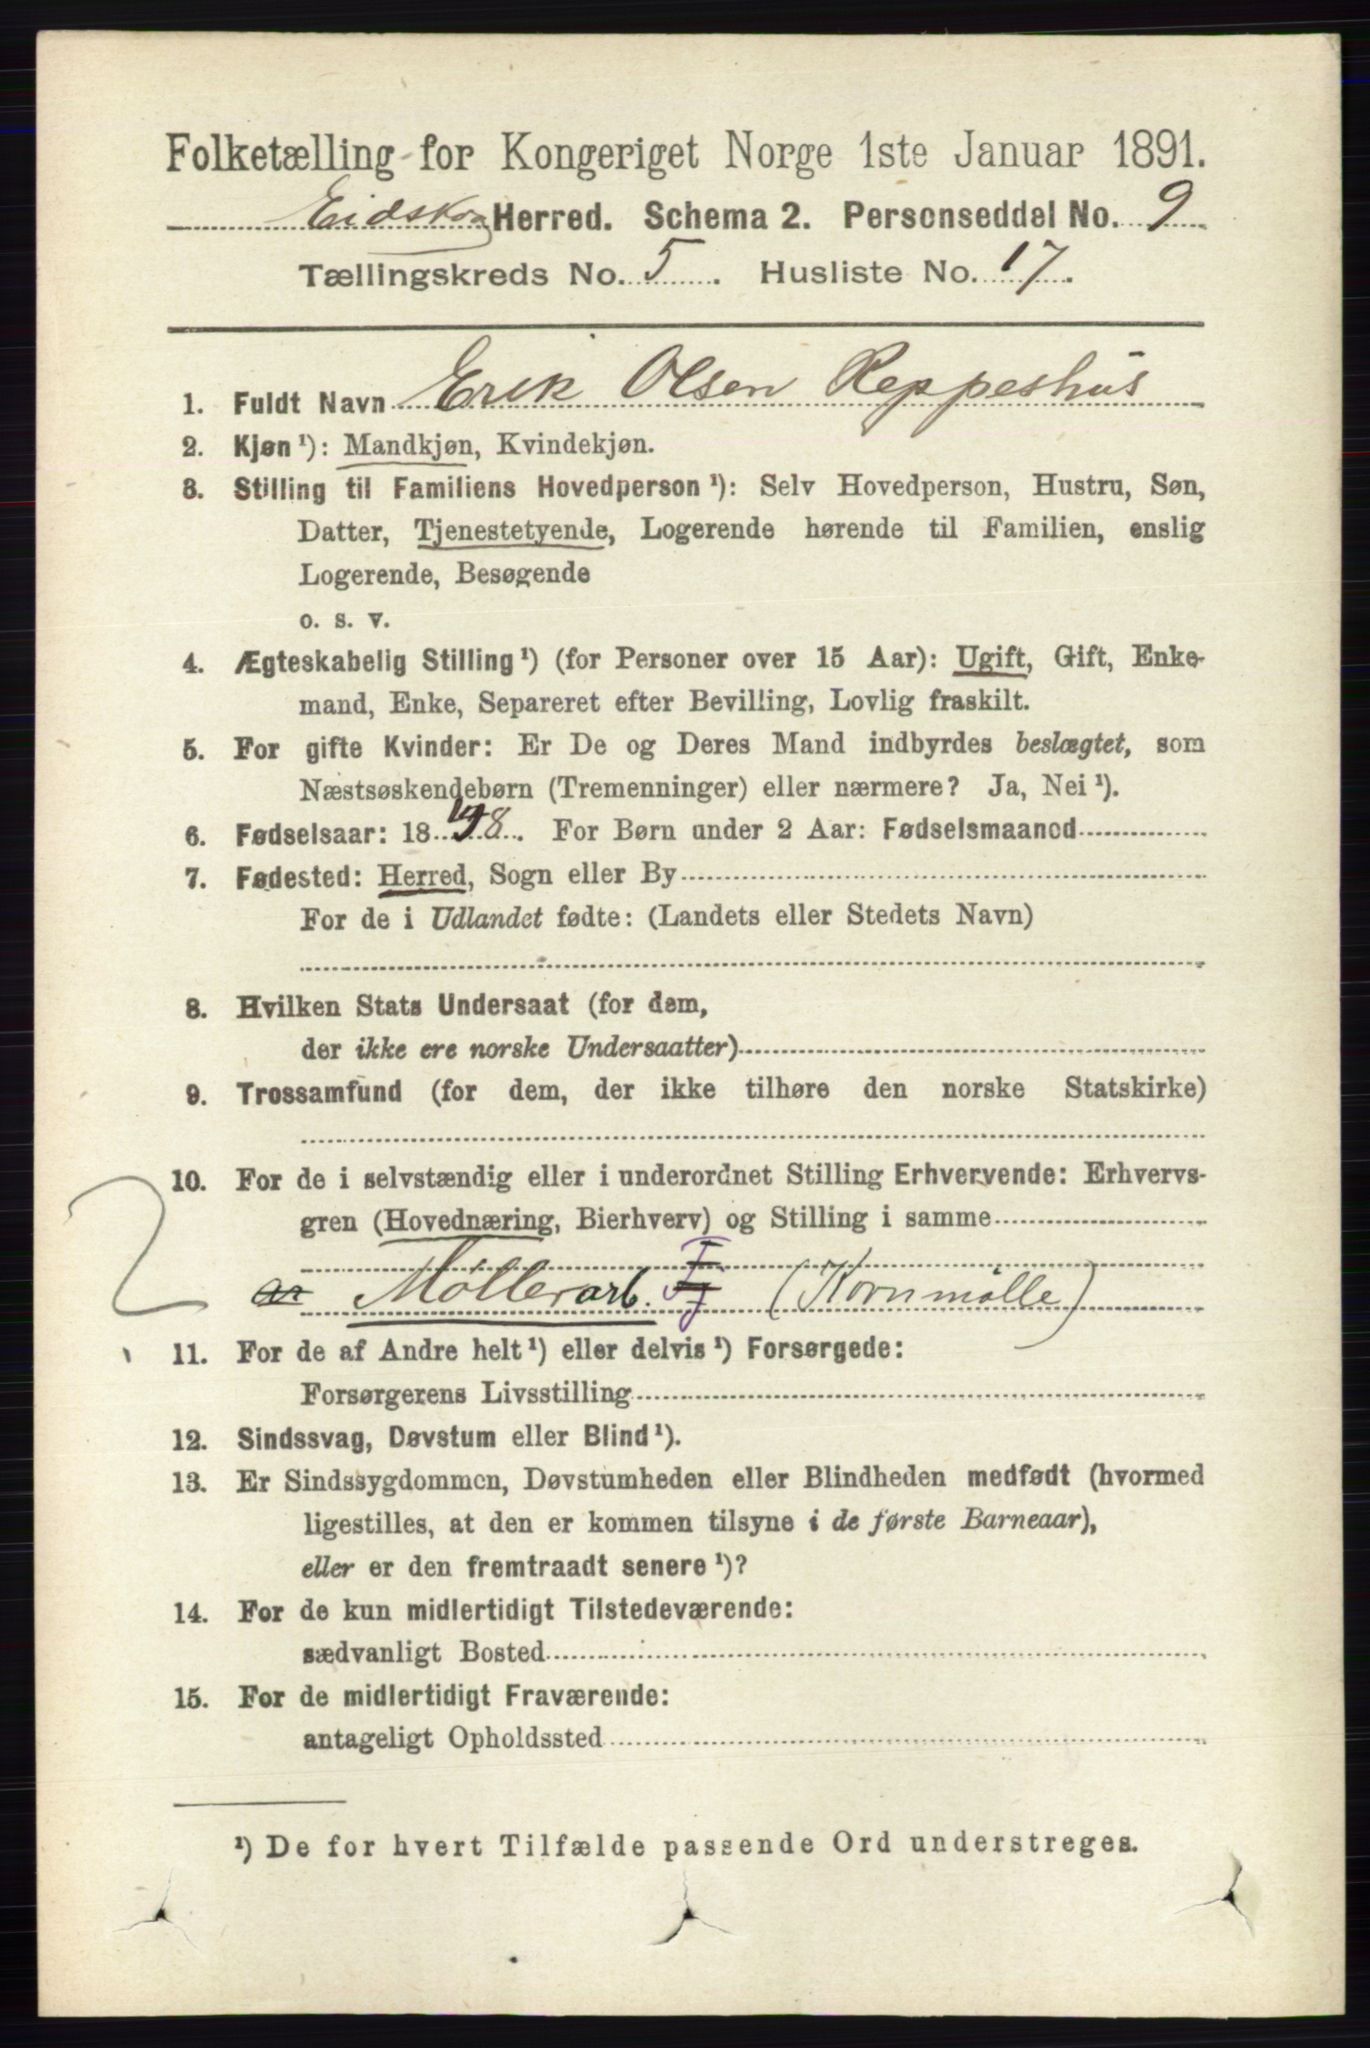 Folketælling for Kongeriget Norge 1ste Januar 1891.
Eidskog Herred. Schema 2. Personseddel No. 9
Tællingskreds No. 5. Husliste No. 17.
1. Fuldt Navn Erik Olsen Reppeshus
2. Kjøn ¹): Mandkjøn, Kvindekjøn.
3. Stilling til Familiens Hovedperson ¹): Selv Hovedperson, Hustru, Søn,
Datter, Tjenestetyende, Logerende hørende til Familien, enslig
Logerende, Besøgende
o. s. v.
4. Ægteskabelig Stilling ¹) (for Personer over 15 Aar): Ugift, Gift, Enke-
mand, Enke, Separeret efter Bevilling, Lovlig fraskilt.
5. For gifte Kvinder: Er De og Deres Mand indbyrdes beslægtet, som
Næstsøskendebørn (Tremenninger) eller nærmere? Ja, Nei ¹).
6. Fødselsaar: 18 48. For Børn under 2 Aar: Fødselsmaaned
7. Fødested: Herred, Sogn eller By
For de i Udlandet fødte: (Landets eller Stedets Navn)
8. Hvilken Stats Undersaat (for dem,
der ikke ere norske Undersaatter)
9. Trossamfund (for dem, der ikke tilhøre den norske Statskirke)
10. For de i selvstændig eller i underordnet Stilling Erhvervende: Erhvervs-
gren (Hovednæring, Bierhverv) og Stilling i samme
Møllerarb. Fj (Kornmølle)
11. For de af Andre helt ¹) eller delvis ¹) Forsørgede:
Forsørgerens Livsstilling
12. Sindssvag, Døvstum eller Blind ¹).
13. Er Sindssygdommen, Døvstumheden eller Blindheden medfødt (hvormed
ligestilles, at den er kommen tilsyne i de første Barneaar),
eller er den fremtraadt senere ¹)?
14. For de kun midlertidigt Tilstedeværende:
sædvanligt Bosted
15. For de midlertidigt Fraværende:
antageligt Opholdssted
¹) De for hvert Tilfælde passende Ord understreges.